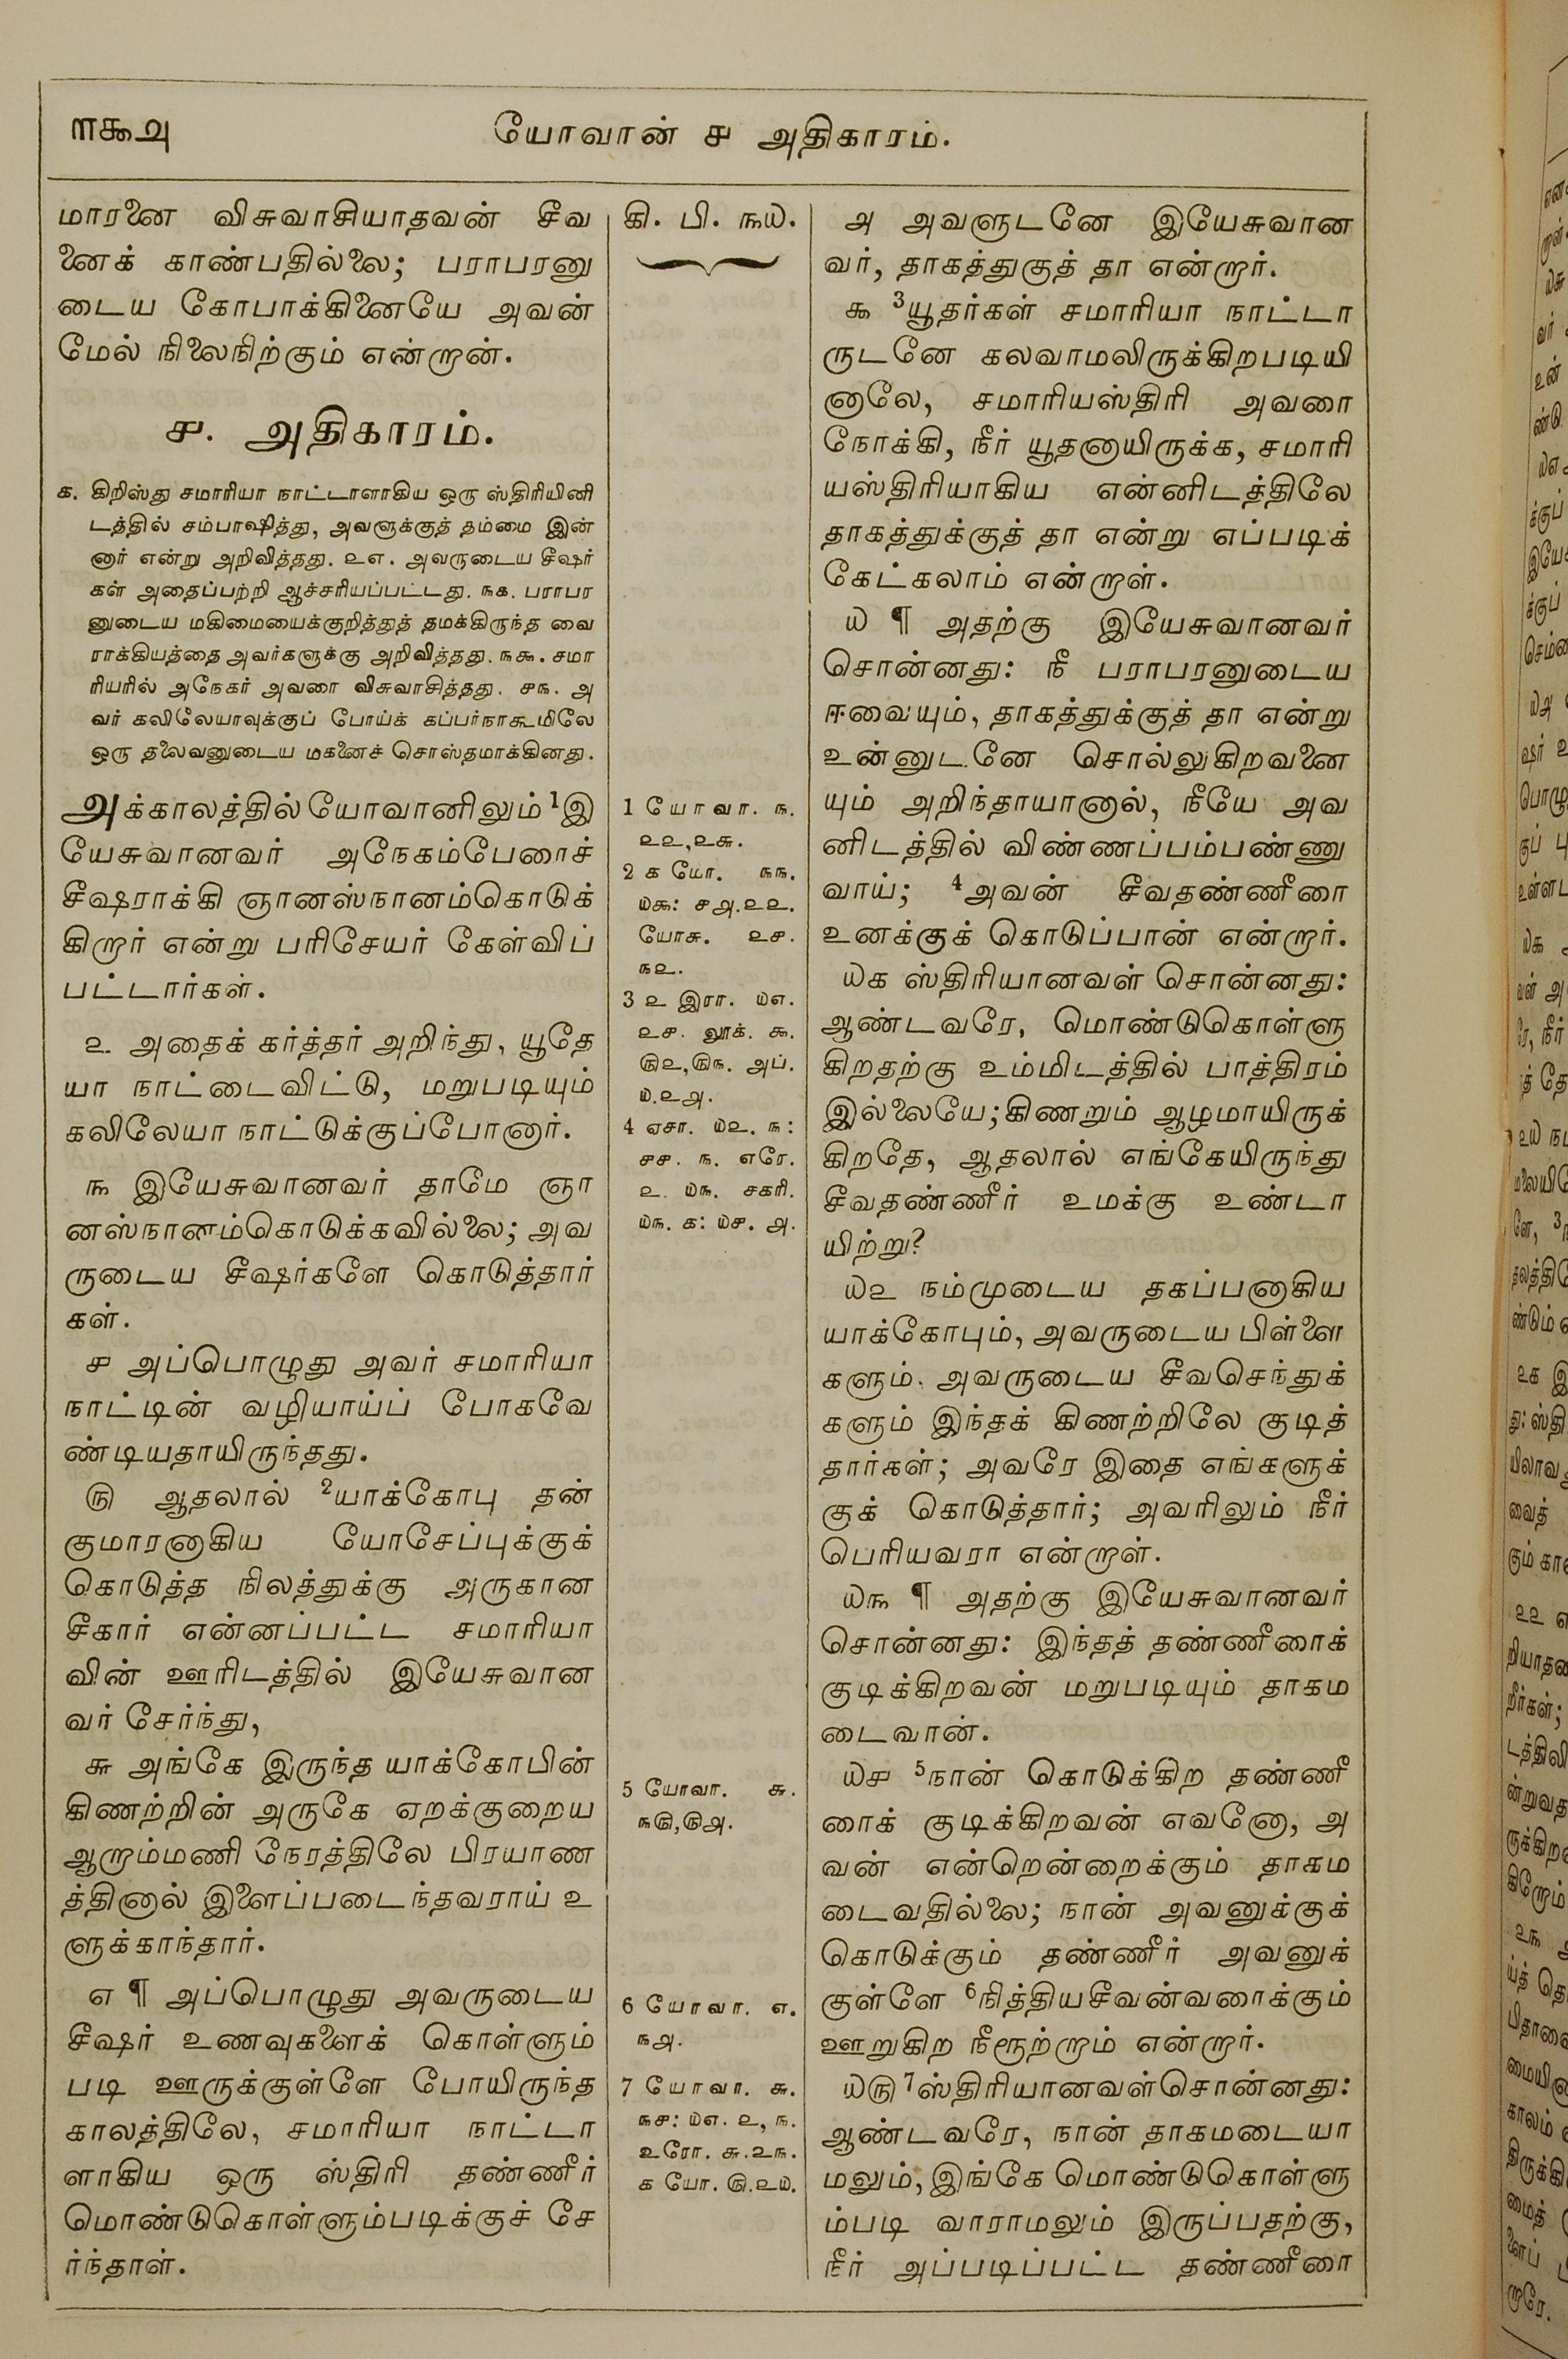 ௱௯௮
யோவான் ௪ அதிகாரம்.
மாரனை விசுவாசியாதவன் சீவ
னைக் காண்பதில்லை; பராபரனு
டைய கோபாக்கினையே அவன்
மேல் நிலைநிற்கும் என்றான்.
௪. அதிகாரம்.
௧. கிறிஸ்து சமாரியா நாட்டாளாகிய ஒரு ஸ்திரியினி
டத்தில் சம்பாஷித்து, அவளுக்குத் தம்மை இன்
னார் என்று அறிவித்தது. ௨௭. அவருடைய சீஷர்
கள் அதைப்பற்றி ஆச்சரியப்பட்டது. ௩௧. பராபர
னுடைய மகிமையைக்குறித்துத் தமக்கிருந்த வை
ராக்கியத்தை அவர்களுக்கு அறிவித்தது. ௩௯. சமா
ரியரில் அநேகர் அவரை விசுவாசித்தது. ௪௩. அ
வர் கலிலேயாவுக்குப் போய்க் கப்பர்நாகூமிலே
ஒரு தலைவனுடைய மகனைச் சொஸ்தமாக்கினது.
அக்காலத்தில் யோவானிலும் ¹இ
யேசுவானவர் அநேகம்பேரைச்
சீஷராக்கி ஞானஸ்நானம்கொடுக்
கிறார் என்று பரிசேயர் கேள்விப்
பட்டார்கள்.
௨ அதைக் கர்த்தர் அறிந்து, யூதே
யா நாட்டைவிட்டு, மறுபடியும்
கலிலேயா நாட்டுக்குப்போனார்.
௩ இயேசுவானவர் தாமே ஞா
னஸ்நானம்கொடுக்கவில்லை; அவ
ருடைய சீஷர்களே கொடுத்தார்
கள்.
௪ அப்பொழுது அவர் சமாரியா
நாட்டின் வழியாய்ப் போகவே
ண்டியதாயிருந்தது.
௫ ஆதலால் ²யாக்கோபு தன்
குமாரனாகிய யோசேப்புக்குக்
கொடுத்த நிலத்துக்கு அருகான
சீகார் என்னப்பட்ட சமாரியா
வின் ஊரிடத்தில் இயேசுவான
வர் சேர்ந்து,
௬ அங்கே இருந்த யாக்கோபின்
கிணற்றின் அருகே ஏறக்குறைய
ஆறாம்மணி நேரத்திலே பிரயாண
த்தினால் இளைப்படைந்தவராய் உ
ளுக்காந்தார்.
௭ ¶ அப்பொழுது அவருடைய
சீஷர் உணவுகளைக் கொள்ளும்
படி ஊருக்குள்ளே போயிருந்த
காலத்திலே, சமாரியா நாட்டா
ளாகிய ஒரு ஸ்திரி தண்ணீர்
மொண்டுகொள்ளும்படிக்குச் சே
ர்ந்தாள்.
கி. பி. ௩௰.
1 யோவா. ௩.
௨௨,௨௬.
2 ௧ யோ. ௩௩.
௰௯: ௪௮.௨௨.
யோசு. ௨௪.
௩௨.
3 ௨ இரா. ௰௭.
௨௪. லூக். ௯.
௫௨,௫௩. அப்.
௰.௨௮.
4 ஏசா. ௰௨. ௩:
௪௪. ௩. எரே.
௨. ௰௩. சகரி.
௰௩. ௧: ௰௪. ௮.
5 யோவா. ௬.
௩௫,௫௮.
6 யோவா. ௭.
௩௮.
7 யோவா. ௬.
௩௪: ௰௭. ௨, ௩.
உரோ. ௬.௨௩.
௧ யோ. ௫.௨௰.
௮ அவளுடனே இயேசுவான
வர், தாகத்துகுத் தா என்றார்.
௯ ³யூதர்கள் சமாரியா நாட்டா
ருடனே கலவாமலிருக்கிறபடியி
னாலே, சமாரியஸ்திரி அவரை
நோக்கி, நீர் யூதனாயிருக்க, சமாரி
யஸ்திரியாகிய என்னிடத்திலே
தாகத்துக்குத் தா என்று எப்படிக்
கேட்கலாம் என்றாள்.
௰ ¶ அதற்கு இயேசுவானவர்
சொன்னது: நீ பராபரனுடைய
ஈவையும், தாகத்துக்குத் தா என்று
உன்னுடனே சொல்லுகிறவனை
யும் அறிந்தாயானால், நீயே அவ
னிடத்தில் விண்ணப்பம்பண்ணு
வாய்; ⁴அவன் சீவதண்ணீரை
உனக்குக் கொடுப்பான் என்றார்.
௰௧ ஸ்திரியானவள் சொன்னது:
ஆண்டவரே, மொண்டுகொள்ளு
கிறதற்கு உம்மிடத்தில் பாத்திரம்
இல்லையே; கிணறும் ஆழமாயிருக்
கிறதே, ஆதலால் எங்கேயிருந்து
சீவதண்ணீர் உமக்கு உண்டா
யிற்று?
௰௨ நம்முடைய தகப்பனாகிய
யாக்கோபும், அவருடைய பிள்ளை
களும், அவருடைய சீவசெந்துக்
களும் இந்தக் கிணற்றிலே குடித்
தார்கள்; அவரே இதை எங்களுக்
குக் கொடுத்தார்; அவரிலும் நீர்
பெரியவரா என்றாள்.
௰௩ ¶ அதற்கு இயேசுவானவர்
சொன்னது: இந்தத் தண்ணீரைக்
குடிக்கிறவன் மறுபடியும் தாகம
டைவான்.
௰௪ ⁵நான் கொடுக்கிற தண்ணீ
ரைக் குடிக்கிறவன் எவனோ, அ
வன் என்றென்றைக்கும் தாகம
டைவதில்லை; நான் அவனுக்குக்
கொடுக்கும் தண்ணீர் அவனுக்
குள்ளே ⁶நித்தியசீவன்வரைக்கும்
ஊறுகிற நீரூற்றாம் என்றார்.
௰௫ ⁷ஸ்திரியானவள்சொன்னது:
ஆண்டவரே, நான் தாகமடையா
மலும், இங்கே மொண்டுகொள்ளு
ம்படி வாராமலும் இருப்பதற்கு,
நீர் அப்படிப்பட்ட தண்ணீரை